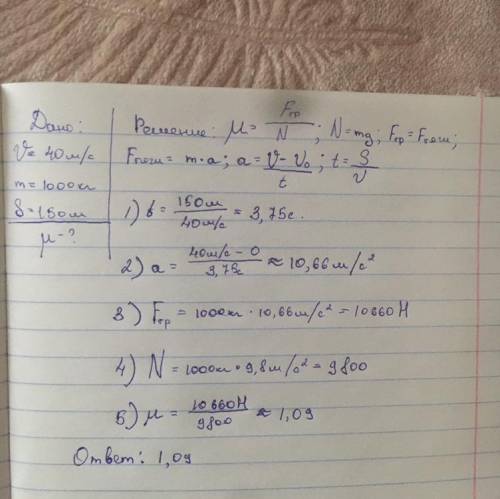 Дано:
V= 40м/с
m=1000кг
S=150м
μ-?
Решение: μ= Fтр/N ; N=mg; Fтр=Fтяги;
Fтяги = m·a; a= V-V₀/t ; t= S/V
1) t= 150м/40м/с = 3,75с.
2) a= 40м/с-0/3,75с ≈ 10,66м/с²
3) Fтр = 1000кг · 10,66м/с² = 10660Н
4) N = 1000кг · 9,8м/с² = 9800
5) μ = 10660Н/9800 ≈ 1,09
Ответ: 1,09